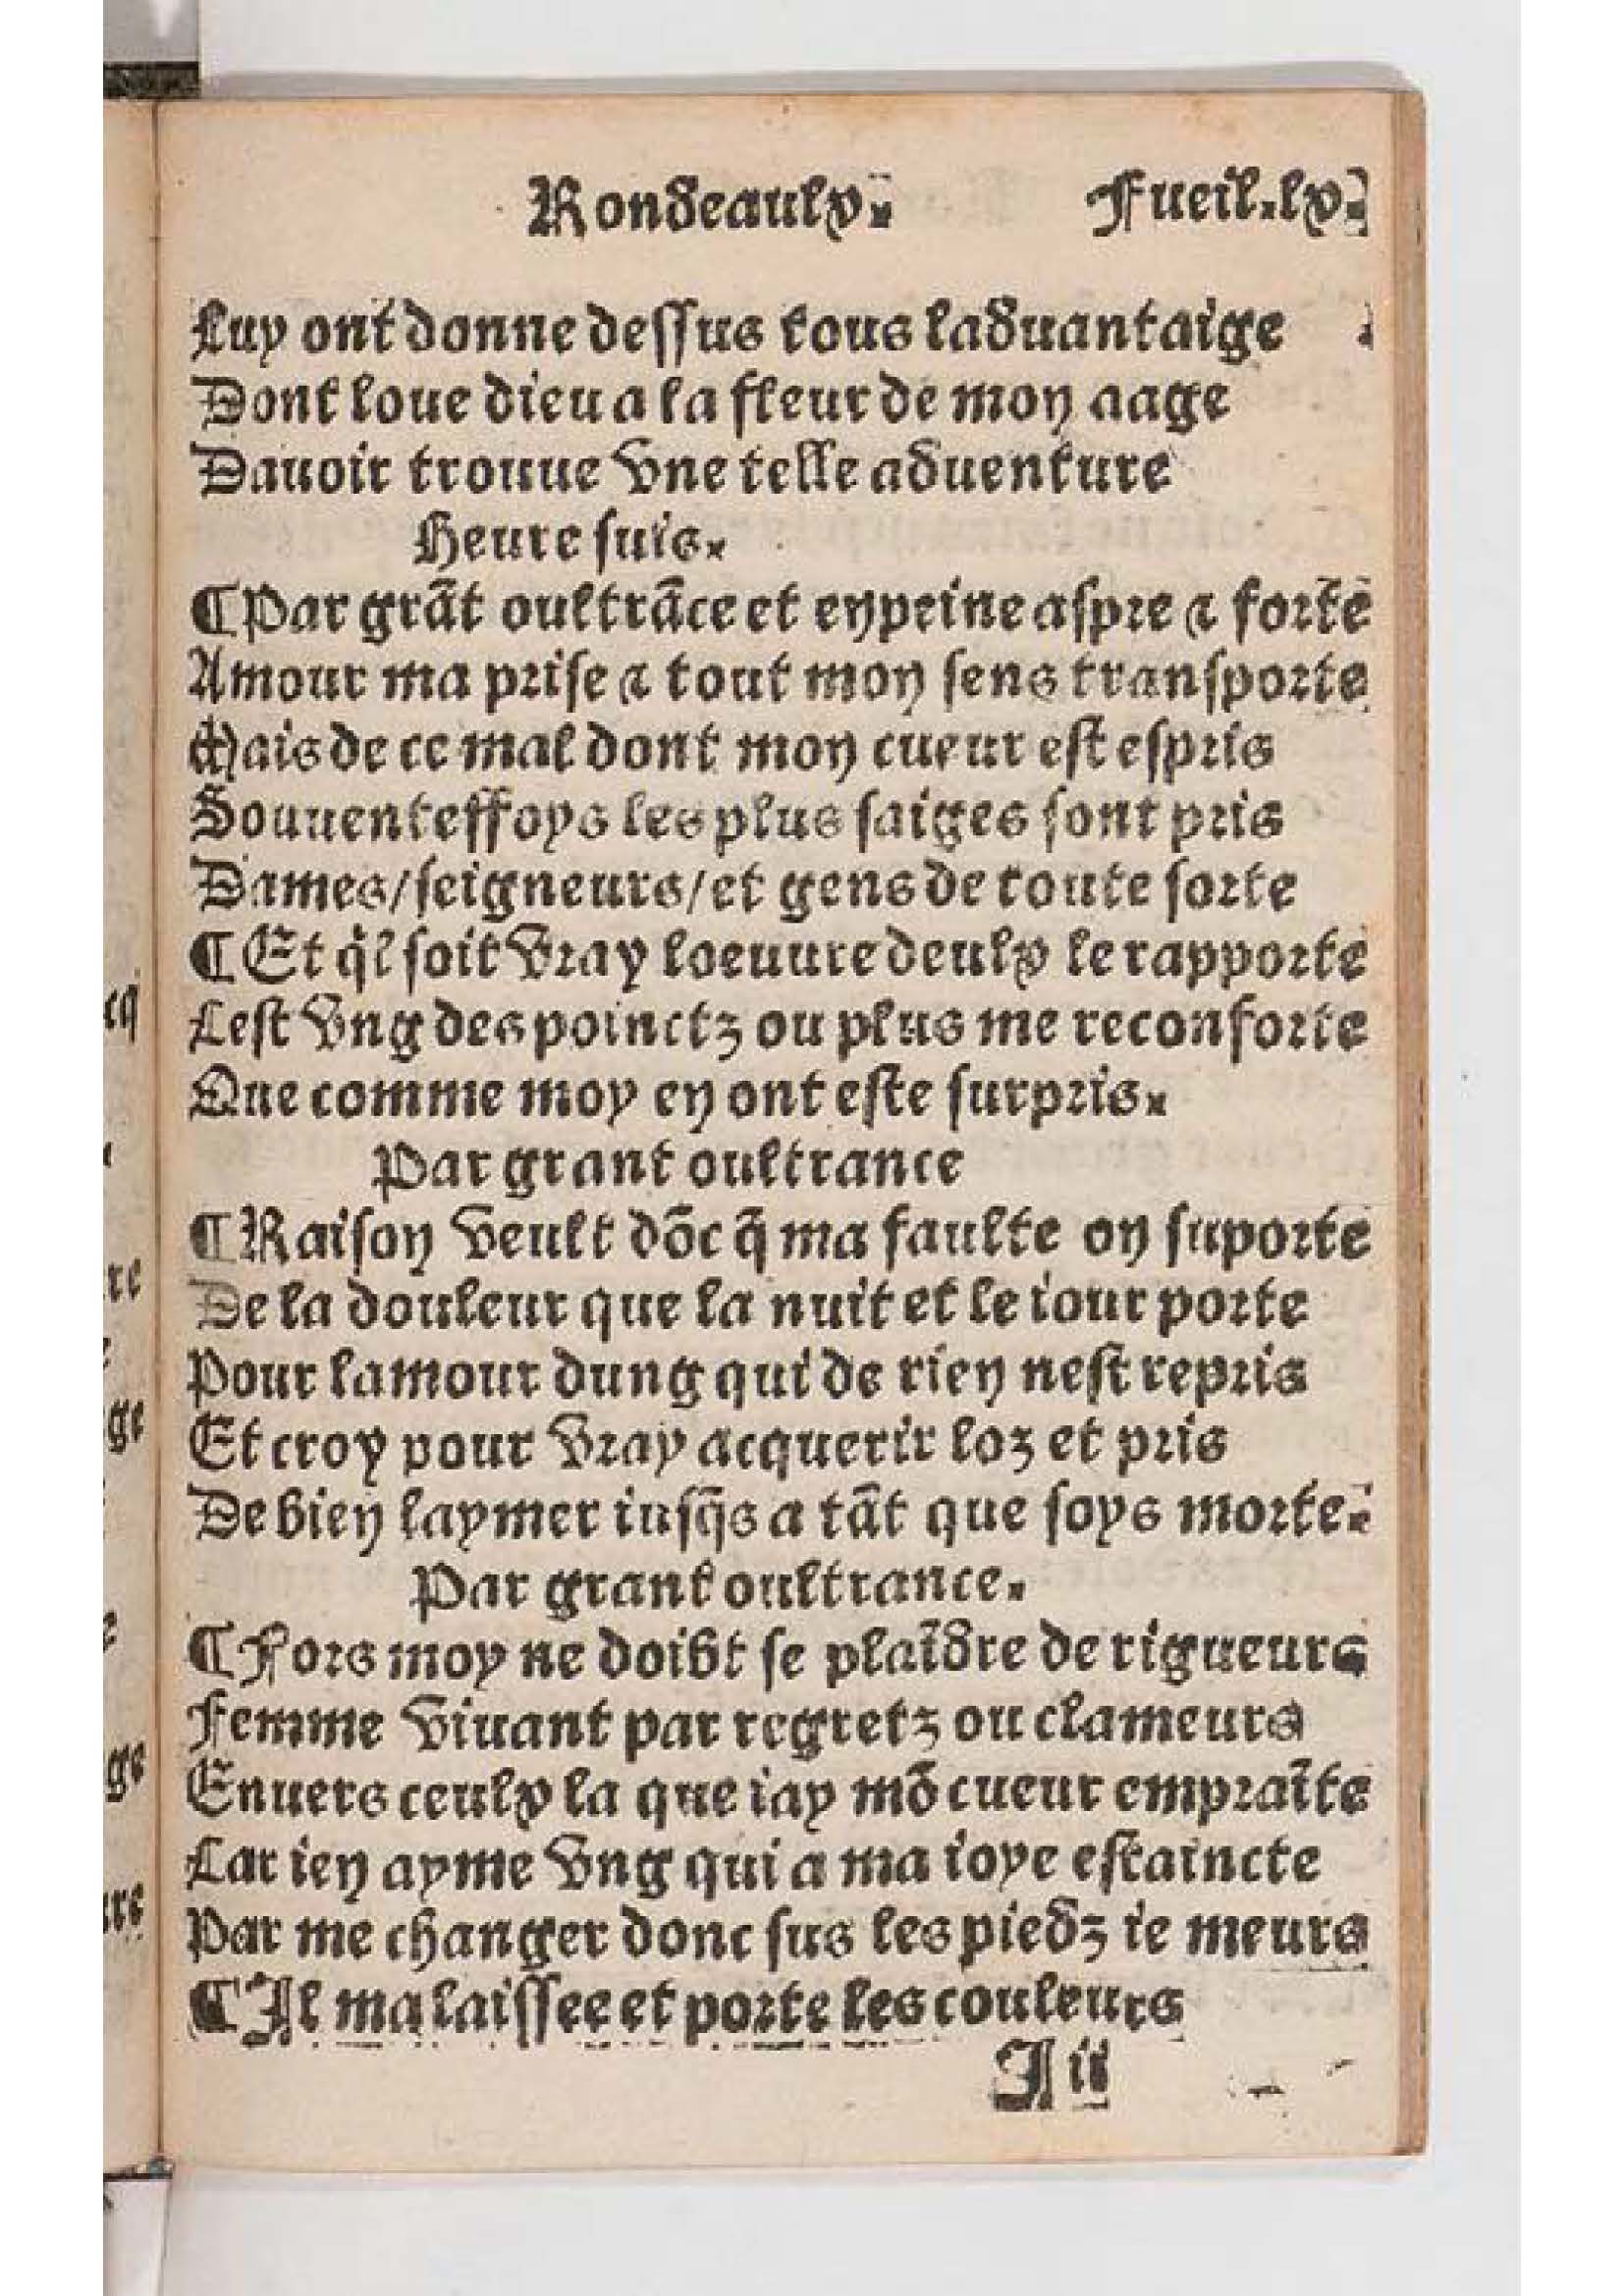 Rondeaulx. Fueil.lx.
Luy ont donne dessus tous laduantaige
Dont loue dieu a la fleur de mon aage
Dauoir trouue vne telle aduenture
Heure suis.
¶Par grãt oultrãce et en peine aspre ⁊ forte
Amour ma prise ⁊ tout mon sens transporte
Mais de ce mal dont mon cueur est espris
Souuenteffoys les plus saiges sont pris
Dames/seigneurs/et gens de toute sorte
¶Et ql̃ soit vray loeuure deulx le rapporte
Cest vng des poinctz ou plus me reconforte
Que comme moy en ont este surpris.
Par grant oultrance
¶Raison veult dõc q̃ ma faulte on suporte
De la douleur que la nuit et le iour porte
Pour lamour dung qui de rien nest repris
Et croy pour vray acquerir loz et pris
De bien laymer iusq̃s a tãt que soys morte.
Par grant oultrance.
¶Fors moy ne doibt se plaĩdre de rigueurs
Femme viuant par regretz ou clameurs
Enuers ceulx la que iay mõ cueur empraĩte
Car ien ayme vng qui a ma ioye estaincte
Par me changer donc sus les piedz ie meurs
¶Il ma laissee et porte les couleurs
I ii